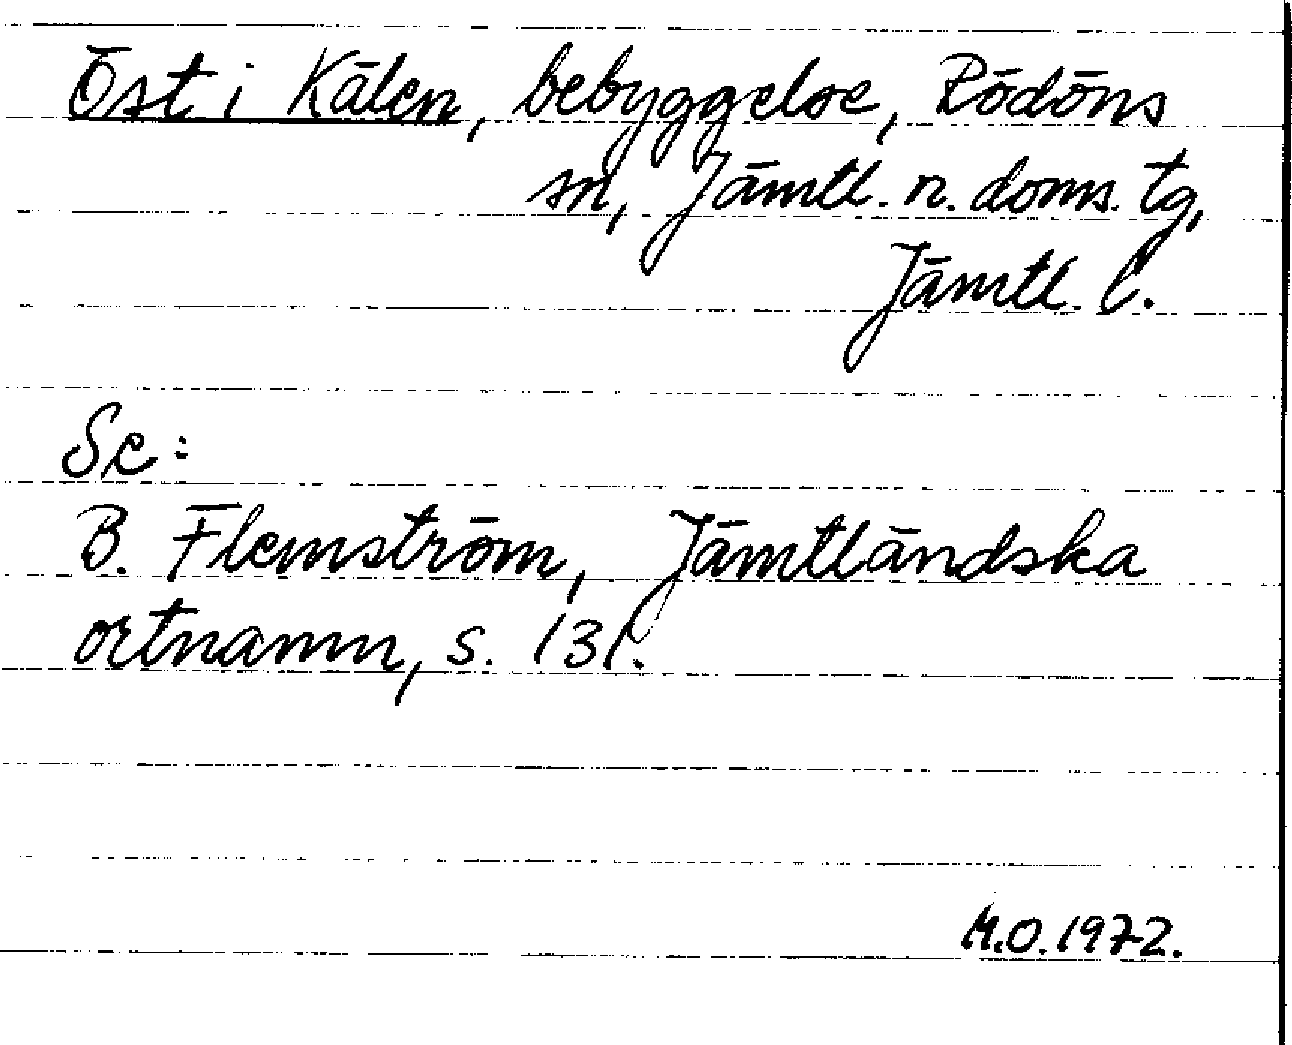 Öst i Kälen, bebyggelse, Rödöns
sn, Jämtl. n. doms. tg,
Jämtl. l.
Se:
B. Flemström, Jämtländska
ortnamn, s. 131.
M.O. 1972.